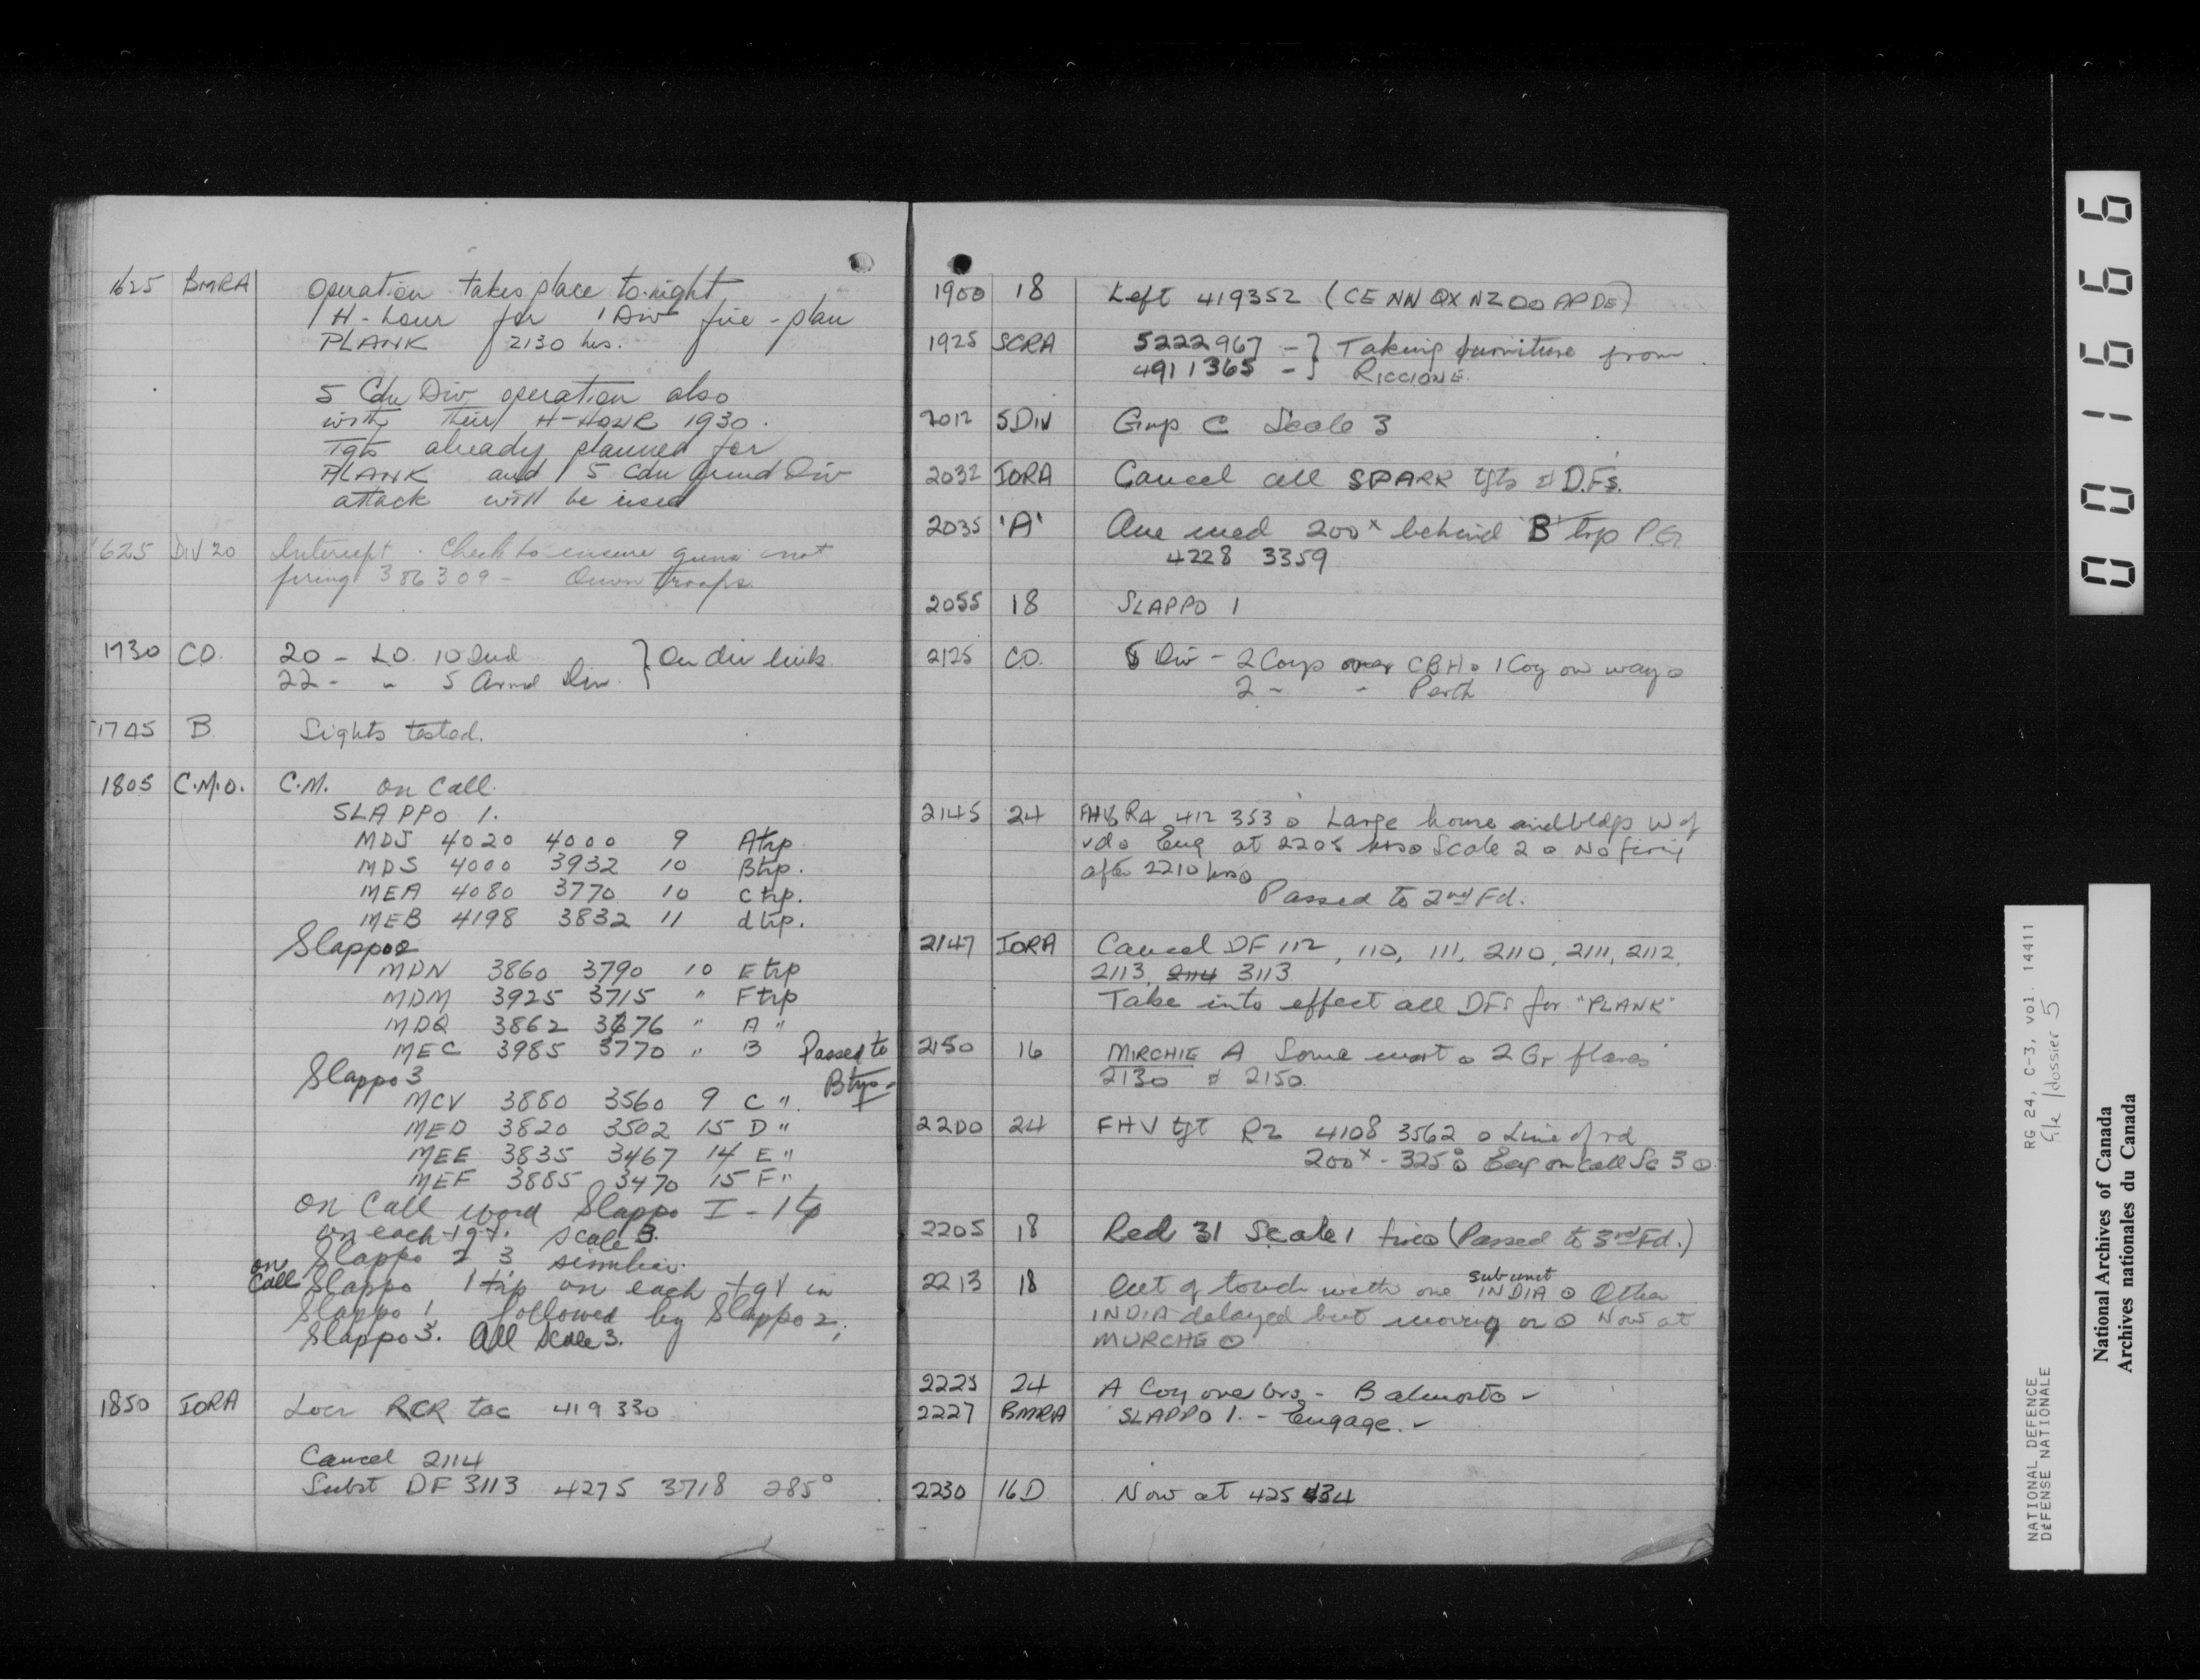 1625 BMRA Operation takes place to-night
H-hour for 1 Div fire-plan
PLANK 2130 hrs.
5 Cdn Div operation also
with their H-HOUR 1930.
Tgts already planned for
PLANK and 5 Cdn Armd Div
attack will be used
1625 DIV 20 Interrupt. Check to ensure guns not
firing 386309 - Own troops.
1730 CO. 20 - LO. 10 Ind } On div link
22 - " 5 Armd Div.
1745 B Sights tested.
1805 C.M.O. C.M. on Call.
SLAPPO 1.
MDJ 4020 4000 9 A trp
MDS 4000 3932 10 B trp.
MEA 4080 3770 10 C trp.
MEB 4198 3832 11 d trp.
Slappo 2
MDN 3860 3790 10 E trp
MDM 3925 3715 " F trp
MDQ 3862 3676 " A "
MEC 3985 3770 " B Passed to
Btys -
Slappo 3
MCV 3880 3560 9 C ".
MED 3820 3502 15 D "
MEE 3835 3467 14 E "
MEF 3885 3470 15 F "
On Call word Slappo I - 1 tp
on each tgt. scale 3.
Slappo 2 3 similar.
on Call Slappo 1 trp on each tgt in
Slappo 1 followed by Slappo 2,
Slappo 3. All Scale 3.
1850 IORA Locn RCR tac 419 330
Cancel 2114
Subst DF 3113 4275 3718 285°
1900 18 Left 419352 (CE NN QX NZ OO AP DE)
1925 SCRA 5222967 - } Taking furniture from
4911365 - } RICCIONE.
2012 5 DIV Gmp C Scale 3
2032 IORA Cancel all SPARK tgts & D.Fs.
2035 'A' One med 200x behind 'B' trp P.G.
4228 3359
2055 18 SLAPPO 1
2125 CO. 5 Div - 2 Coys over CBH o 1 Coy on way o
2 - - Perth
2145 24 FHV R4 412 353 o Large house and bldgs W of
rd o Eng at 2205 hrs o Scale 2 o No firing
after 2210 hrs o
Passed to 2nd Fd.
2147 IORA Cancel DF 112, 110, 111, 2110, 2111, 2112,
2113, 2114 3113
Take into effect all DFs for "PLANK"
2150 16 MIRCHIE A Some mort o 2 Gr flares
2130 & 2150.
2200 24 FHV tgt R2 4108 3562 o Line of rd
200x - 325° o Eng on call Sc 3 o
2205 18 Red 31 Scale 1 fire o (Passed to 3rd Fd.)
2213 18 Out of touch with one subunit INDIA o Other
INDIA delayed but moving on o Now at
MURCHE o
2225 24 A Coy over brs - B almost o ✓
2227 BMRA SLAPPO 1. - Engage. ✓
2230 16D Now at 425 434
001666
NATIONAL DEFENCE RG 24, C-3, vol. 14411
DÉFENSE NATIONALE file/dossier 5
National Archives of Canada
Archives nationales du Canada